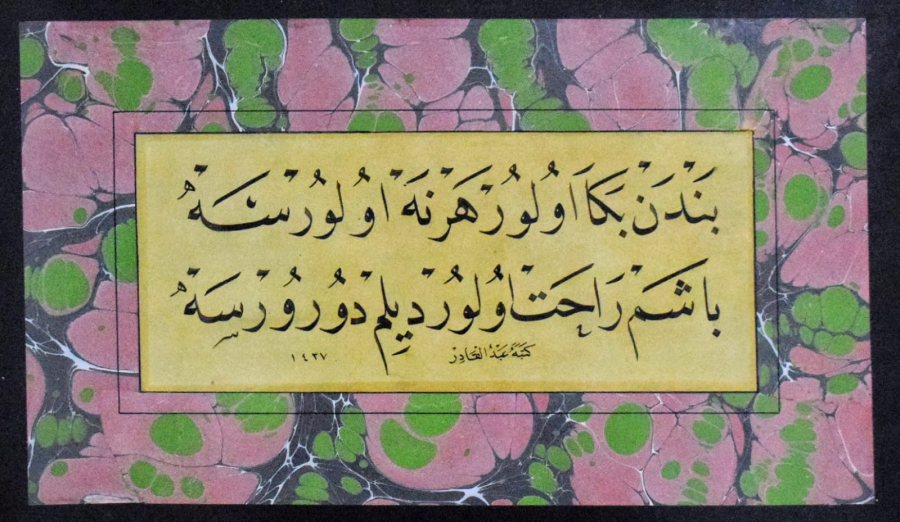 بَنْدَنْ بَكَا اُولُورْ هَرْ نَهْ اُولُورْسَهْ
بَاشَمْ رَاحَتْ اُولُورْ دِيلِمْ دُورُورْسَهْ
كتبهُ عبدُ القادر ١٤٣٧